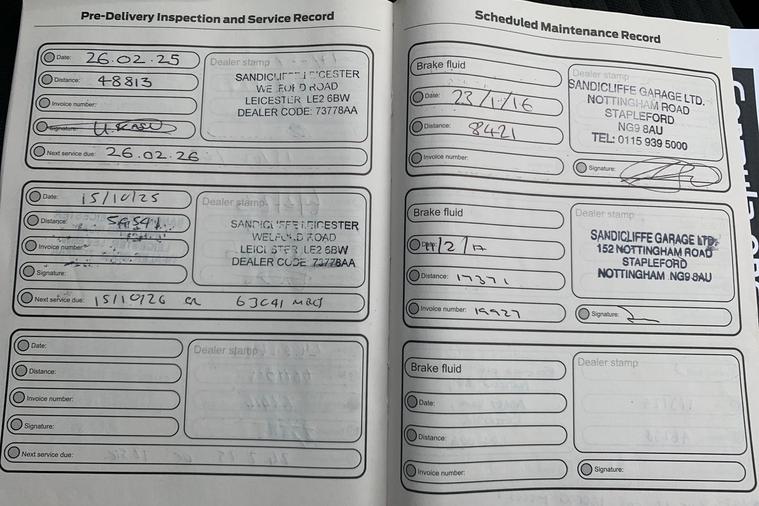 Pre-Delivery Inspection and Service Record
Date: 26.02.25
Distance: 48813
Invoice number:
Signature:
Next service due: 26.02.26
Dealer stamp
SANDICLIFFE LEICESTER
WELFORD ROAD
LEICESTER LE2 6BW
DEALER CODE: 73778AA
Date: 15/10/25
Distance:
Invoice number:
Signature:
Next service due: 15/10/26 or 63041 miles
Dealer stamp
SANDICLIFFE LEICESTER
WELFORD ROAD
LEICESTER LE2 6BW
DEALER CODE 73778AA
Date:
Distance:
Invoice number:
Signature:
Next service due:
Dealer stamp
Scheduled Maintenance Record
Brake fluid
Date: 23/1/16
Distance: 8421
Invoice number:
Dealer stamp
SANDICLIFFE GARAGE LTD.
NOTTINGHAM ROAD
STAPLEFORD
NG9 8AU
TEL: 0115 939 5000
Signature:
Brake fluid
Date: /2/17
Distance: 17371
Invoice number: 19927
Dealer stamp
SANDICLIFFE GARAGE LTD.
152 NOTTINGHAM ROAD
STAPLEFORD
NOTTINGHAM NG9 8AU
Signature:
Brake fluid
Date:
Distance:
Invoice number:
Dealer stamp
Signature: